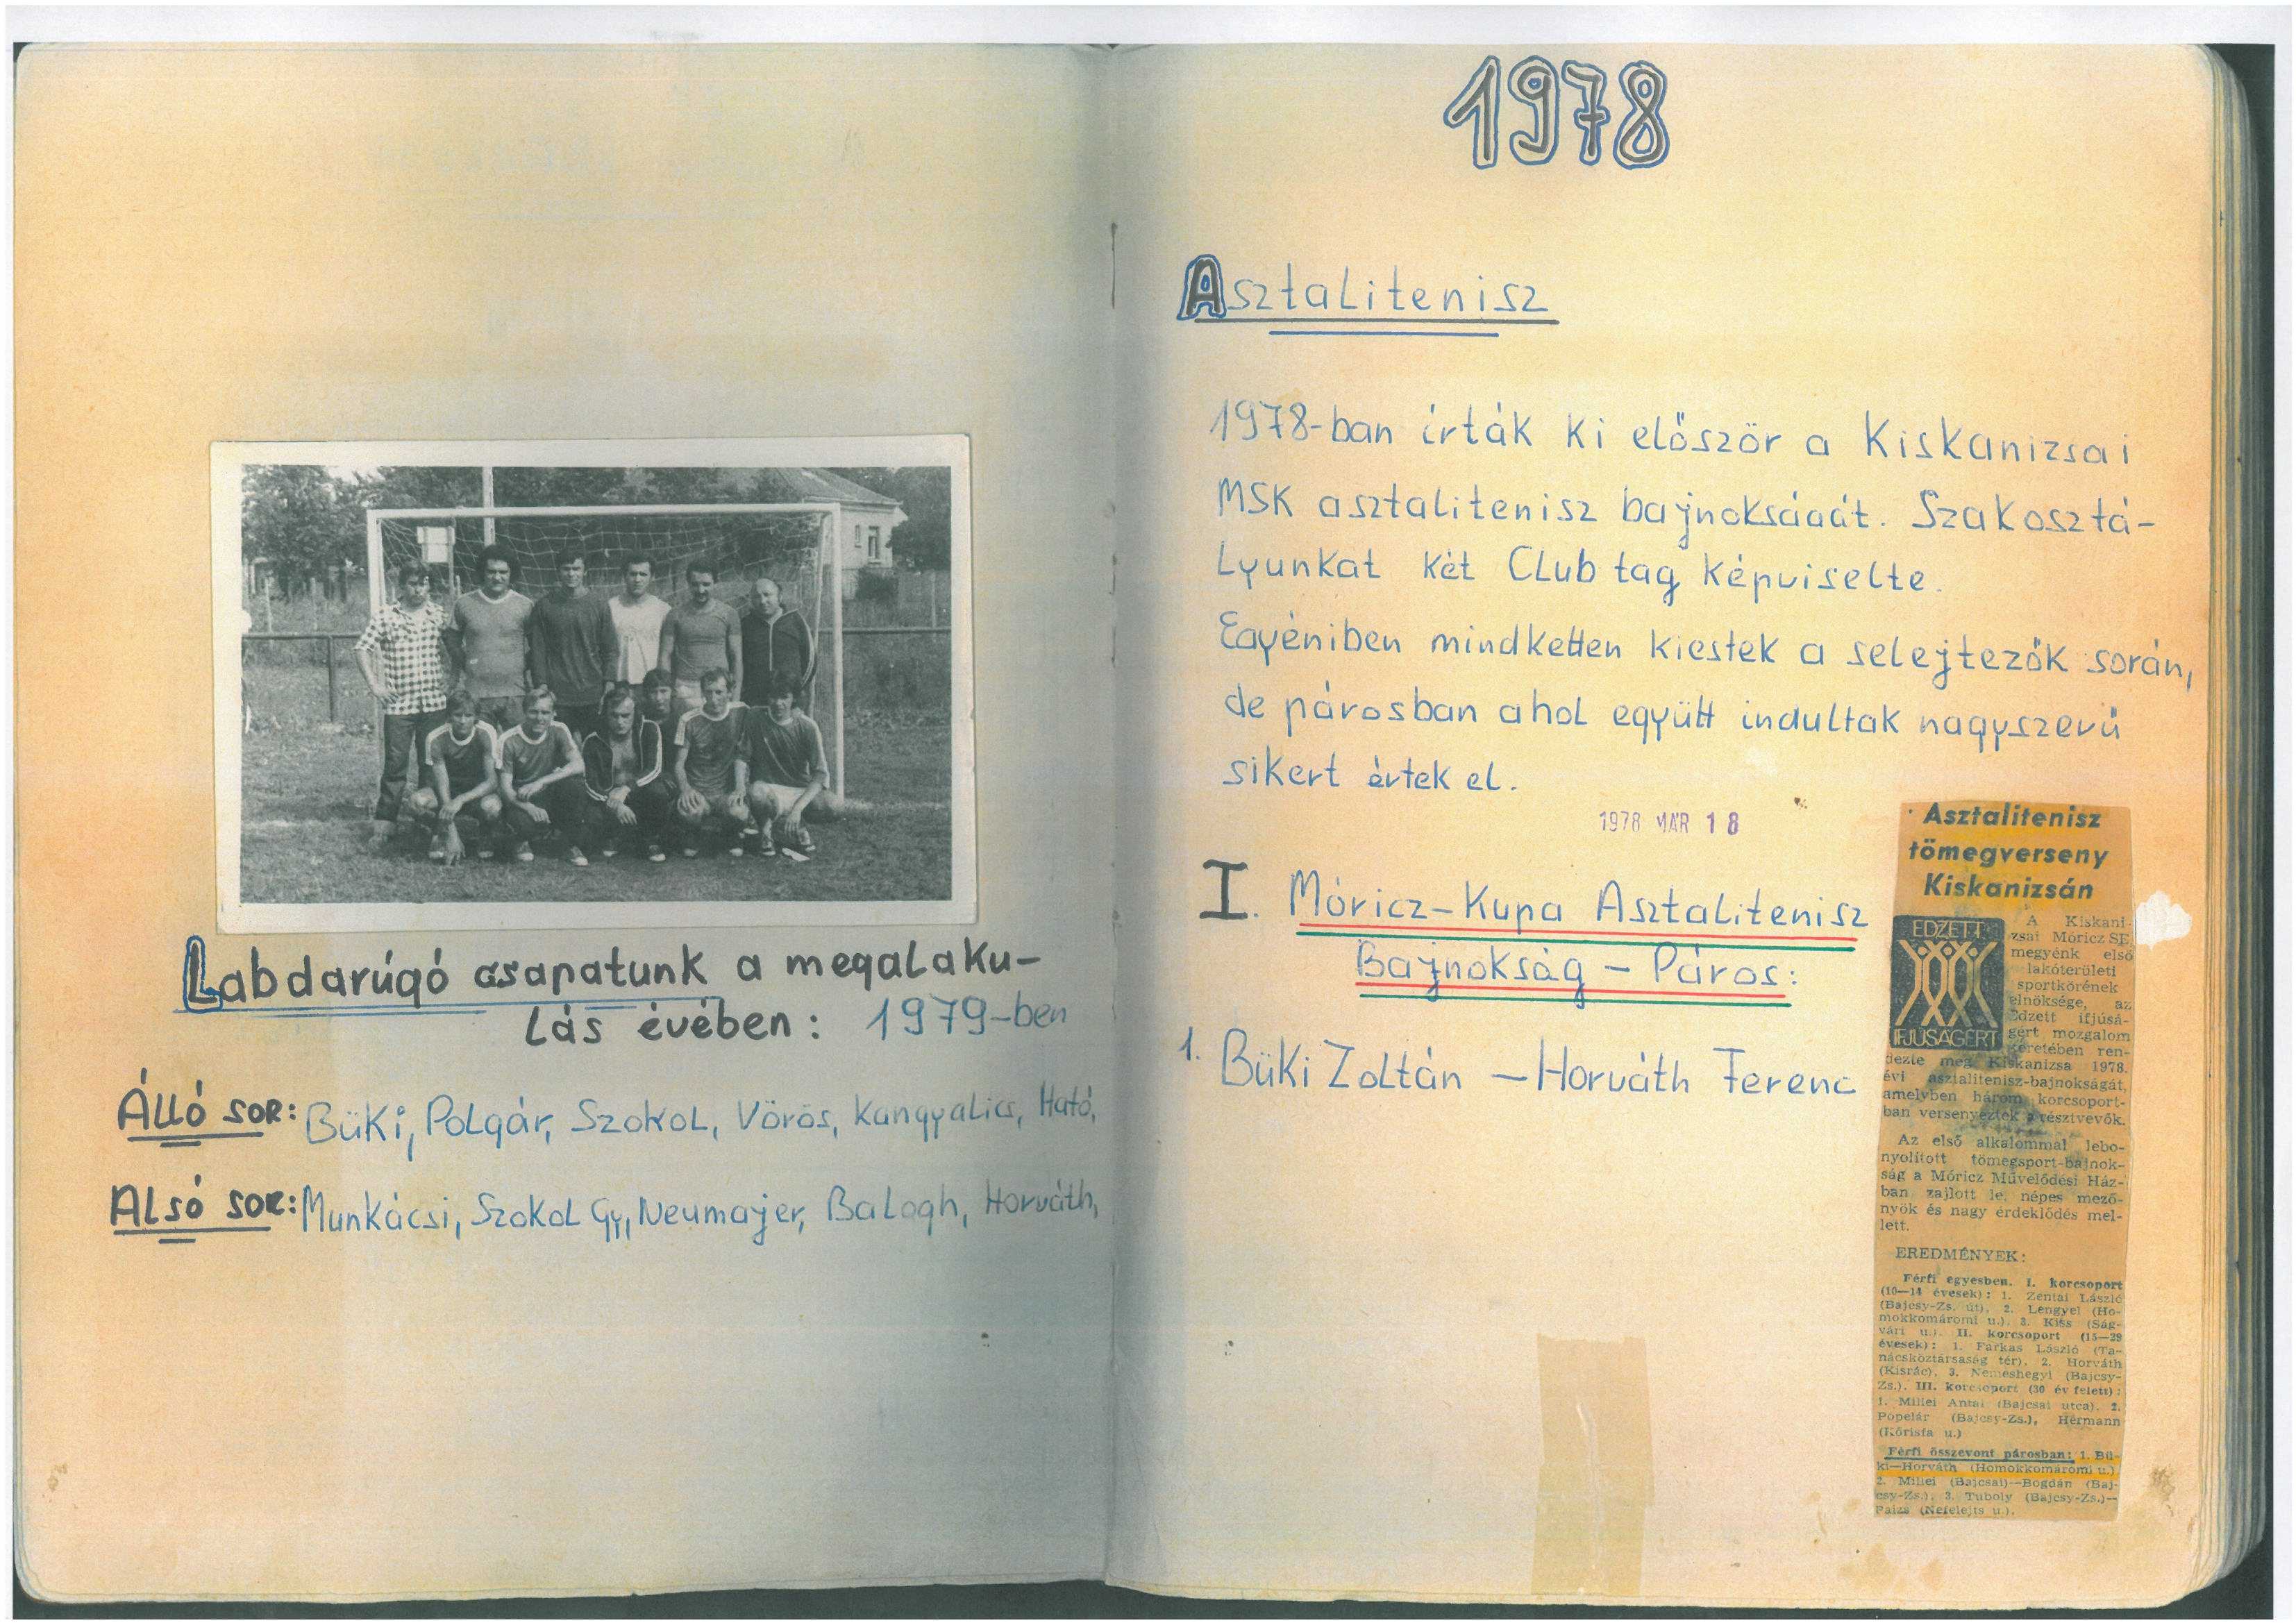 Labdarúgó csapatunk a megalaku-
lás évében: 1979-ben
Álló sor: Büki, Polgár, Szokol, Vörös, Kangyalics, Ható,
Alsó sor: Munkácsi, Szokol Gy, Neumajer, Balogh, Horváth,
1978
Asztalitenisz
1978-ban írták ki először a Kiskanizsai
MSK asztalitenisz bajnokságát. Szakosztá-
lyunkat két Club tag képviselte.
Egyéniben mindketten kiestek a selejtezők során,
de párosban ahol együtt indultak nagyszerű
sikert értek el.
1978 MÁR 18
I. Móricz-Kupa Asztalitenisz
Bajnokság - Páros:
1. Büki Zoltán - Horváth Ferenc
Asztalitenisz
tömegverseny
Kiskanizsán
EDZETT
IFJÚSÁGÉRT
A Kiskani-
zsai Móricz SE,
megyénk első
lakóterületi
sportkörének
elnöksége, az
Edzett ifjúsá-
gért mozgalom
keretében ren-
dezte meg Kiskanizsa 1978.
évi asztalitenisz-bajnokságát,
amelyben három korcsoport-
ban versenyeztek a résztvevők.
Az első alkalommal lebo-
nyolított tömegsport-bajnok-
ság a Móricz Művelődési Ház-
ban zajlott le, népes mező-
nyök és nagy érdeklődés mel-
lett.
EREDMÉNYEK:
Férfi egyesben. I. korcsoport
(10—14 évesek): 1. Zentai László
(Bajcsy-Zs. út), 2. Lengyel (Ho-
mokkomáromi u.), 3. Kiss (Ság-
vári u.). II. korcsoport (15—29
évesek): 1. Farkas László (Ta-
nácsköztársaság tér), 2. Horváth
(Kisrác), 3. Nemeshegyi (Bajcsy-
Zs.). III. korcsoport (30 év felett):
1. Miliei Antal (Bajcsai utca), 2.
Popelár (Bajcsy-Zs.), Hermann
(Kőrisfa u.)
Férfi összevont párosban: 1. Bü-
ki—Horváth (Homokkomáromi u.),
2. Miliei (Bajcsai)—Bogdán (Baj-
csy-Zs.), 3. Tuboly (Bajcsy-Zs.)—
Paizs (Nefelejts u.).